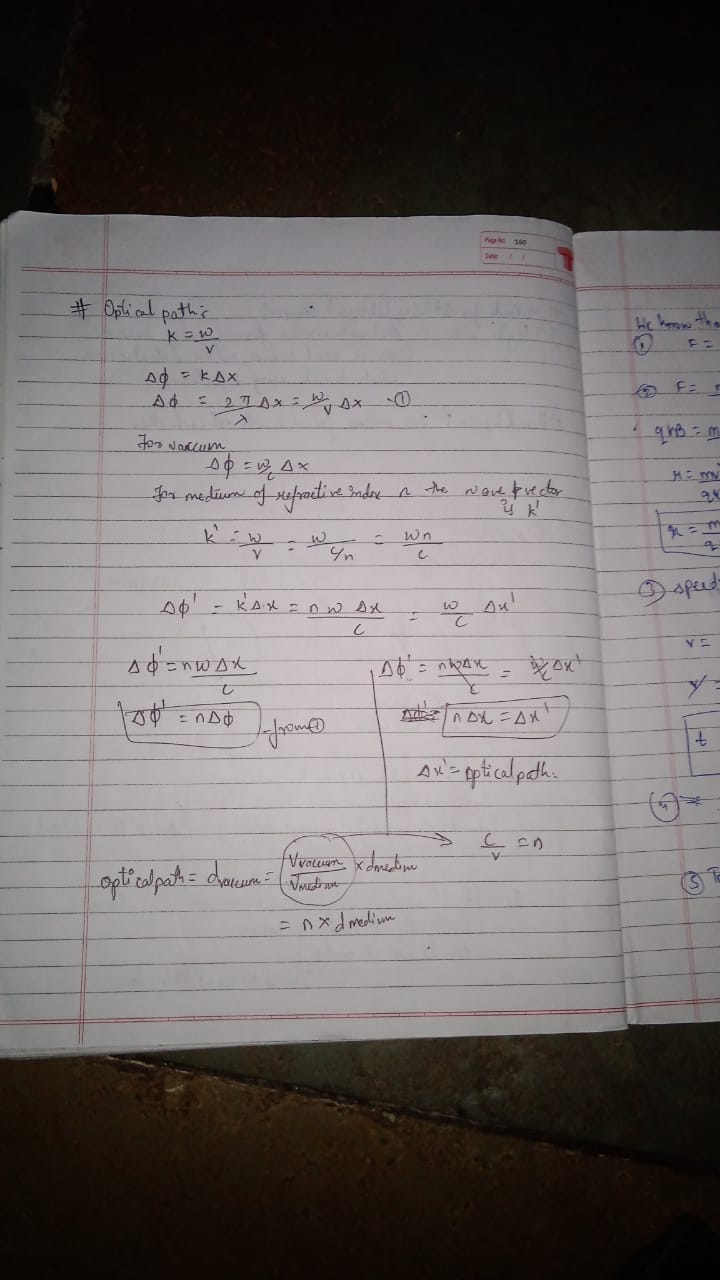 Page No. 160
Date: / /
# Optical path:
k = w/v
Δφ = kΔx
Δφ = 2π/λ Δx = w/v Δx -①
For vacuum
Δφ = w/c Δx
For medium of refractive index n the wave vector
is k'
k' = w/v = w/(c/n) = wn/c
Δφ' = k'Δx = nwΔx/c = w/c Δx'
Δφ' = nwΔx/c
Δφ' = nΔφ -from①
Δφ' = nwΔx/c = w/c Δx'
nΔx = Δx'
Δx' = optical path.
c/v = n
optical path = dvaccum = (Vvaccum/Vmedium) × dmedium
= n × dmedium
We know tha
① F =
② F =
qvB = m
r = mv
q
r = m
q
③ speed
v =
t
④ ⇒
⑤ T